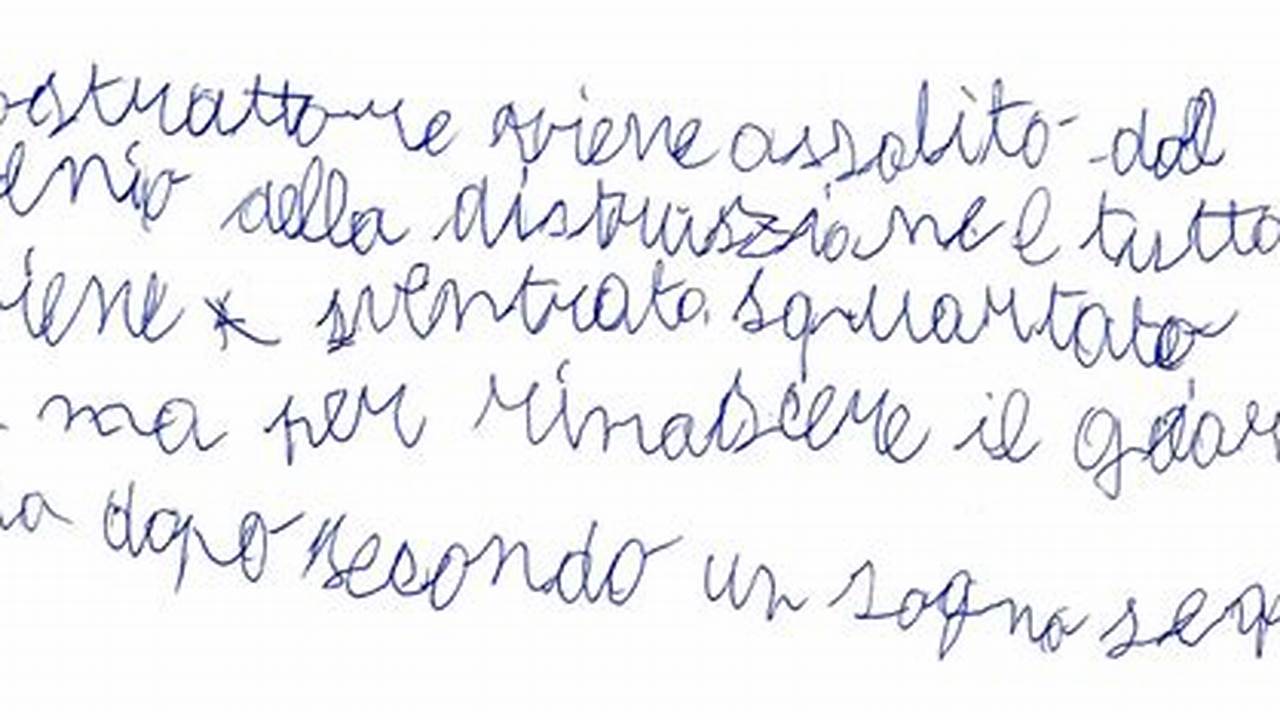 ostrattore viene assalito dal
enio della distruszione e tutto
iene sventrato squartato
ma per rinascere il giar
dopo secondo un sogno seg